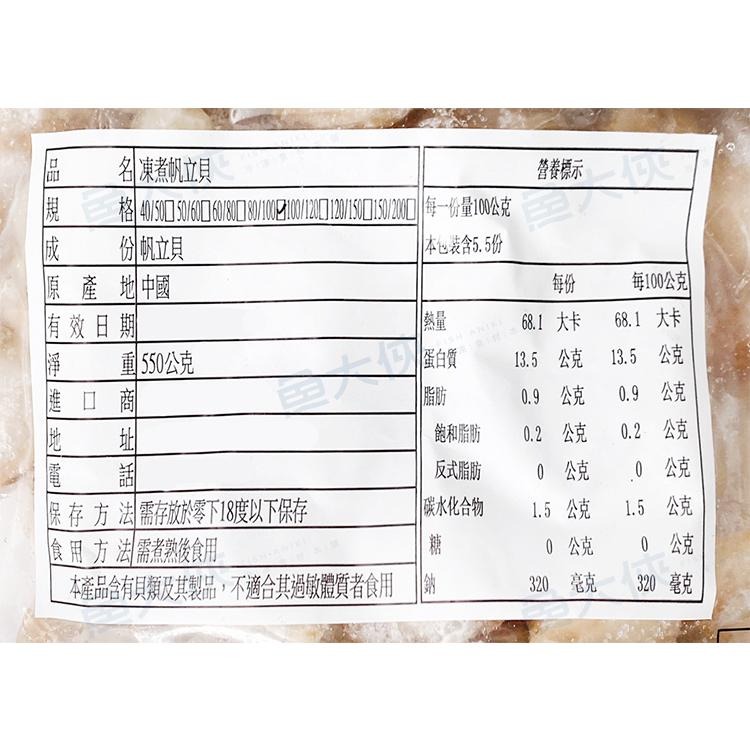 品名 凍煮帆立貝
規格 40/50□ 50/60□ 60/80□ 80/100☑ 100/120□ 120/150□ 150/200□
成份 帆立貝
原產地 中國
有效日期
淨重 550公克
進口商
地址
電話
保存方法 需存放於零下18度以下保存
食用方法 需煮熟後食用
本產品含有貝類及其製品，不適合其過敏體質者食用
營養標示
每一份量100公克
本包裝含5.5份
每份 每100公克
熱量 68.1 大卡 68.1 大卡
蛋白質 13.5 公克 13.5 公克
脂肪 0.9 公克 0.9 公克
飽和脂肪 0.2 公克 0.2 公克
反式脂肪 0 公克 0 公克
碳水化合物 1.5 公克 1.5 公克
糖 0 公克 0 公克
鈉 320 毫克 320 毫克
魚大俠
魚大俠
魚大俠
魚大俠
魚大俠